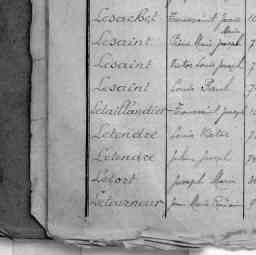 Lesachet Toussaint Jean Marie
Lesaint Pierre Marie Joseph
Lesaint Victor Louis Joseph
Lesaint Louis Paul
Letaillandier Toussaint Joseph
Letendre Louis Victor
Letendre Julien Joseph
Letort Joseph Marie
Letourneur Jean Marie